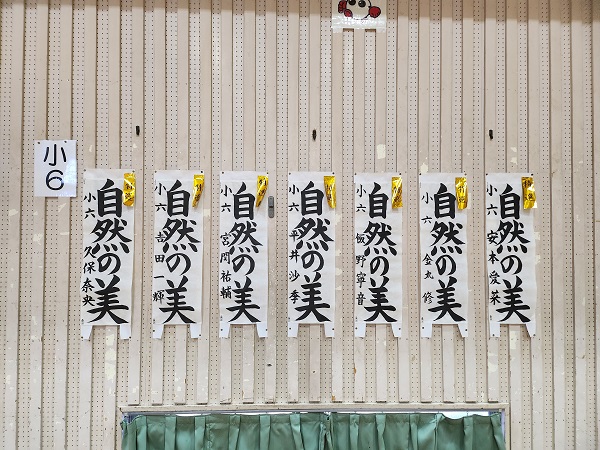 小6
自然の美
小六 久保奈央
自然の美
小六 吉田一輝
自然の美
小六 宮岡祐輔
自然の美
小六 平井沙季
自然の美
小六 飯野寧音
自然の美
小六 金丸修
自然の美
小六 安本愛菜